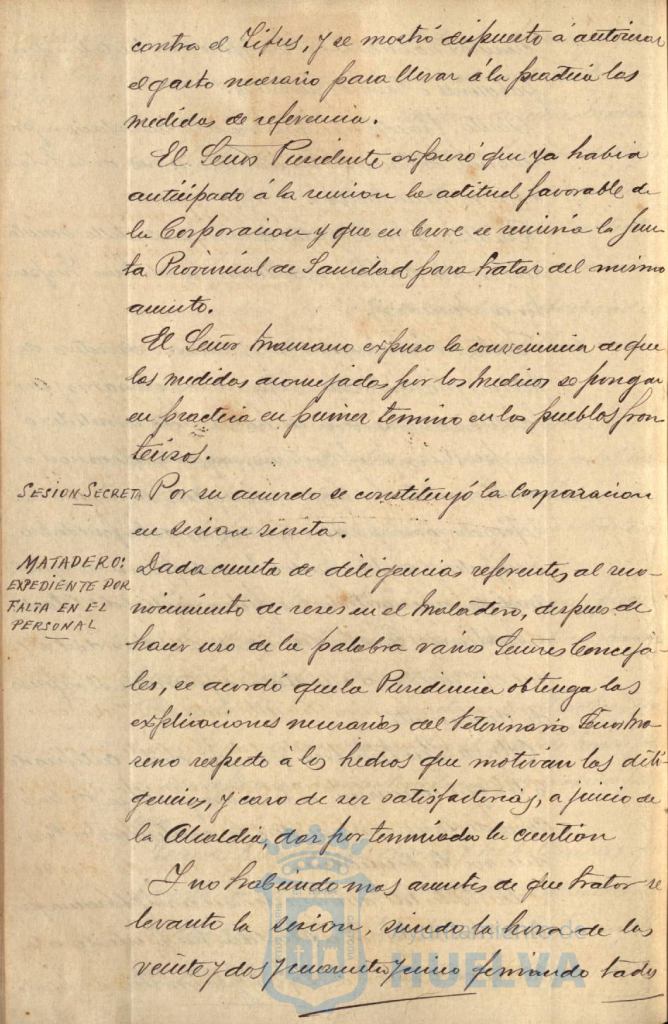 contra el Tifus, y se mostró dispuesto á autorizar
el gasto necesario para llevar á la practica las
medidas de referencia.
El Señor Presidente expuso que ya habia
anticipado á la reunion la actitud favorable de
la Corporacion y que en breve se reuniria la Jun
ta Provincial de Sanidad para tratar del mismo
asunto.
El Señor Manzano expuso la conveniencia de que
las medidas aconsejadas por los Medicos se pongan
en practica en primer termino en los pueblos fron
terizos.
SESION SECRETA
Por su acuerdo se constituyó la Corporacion
en sesion secreta.
MATADERO:
EXPEDIENTE POR
FALTA EN EL
PERSONAL
Dada cuenta de diligencias referentes al reco-
nocimiento de reses en el Matadero, despues de
hacer uso de la palabra varios Señores Conceja-
les, se acordó que la Presidencia obtenga las
explicaciones necesarias del Veterinario Señor Mo-
reno respecto á los hechos que motivan las dili-
gencias, y caso de ser satisfactorias, a juicio de
la Alcaldia, dar por terminada la cuestion
Y no habiendo mas asuntos de que tratar se
levanto la sesion, siendo la hora de las
veinte y dos y cuarenta y cinco firmando todos
Ayuntamiento de
HUELVA